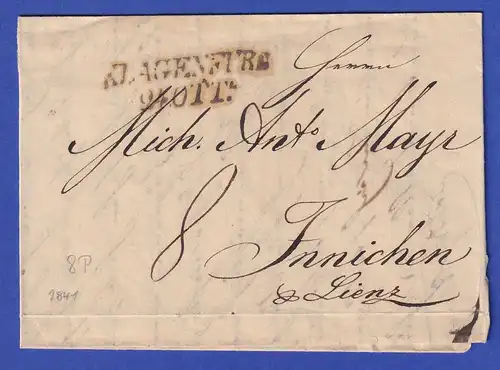 KLAGENFURT
9. OTT.
Herrn
Mich. Ant.º Mayr
8 Innichen
Lienz
8P.
1841